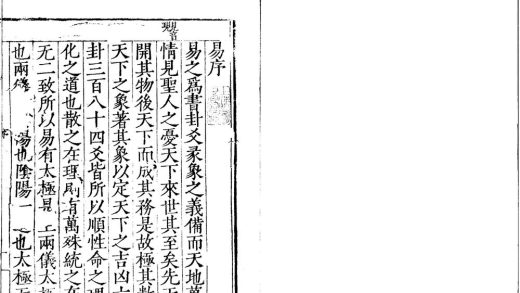 易序
易之爲書卦爻彖象之義備而天地萬
情見聖人之憂天下來世其至矣先天
開其物後天下而成其務是故極其數
天下之象著其象以定天下之吉凶六
卦三百八十四爻皆所以順性命之理
化之道也散之在理則有萬殊統之在
无二致所以易有太極是 兩儀太
也兩儀 也陰陽一 也太極